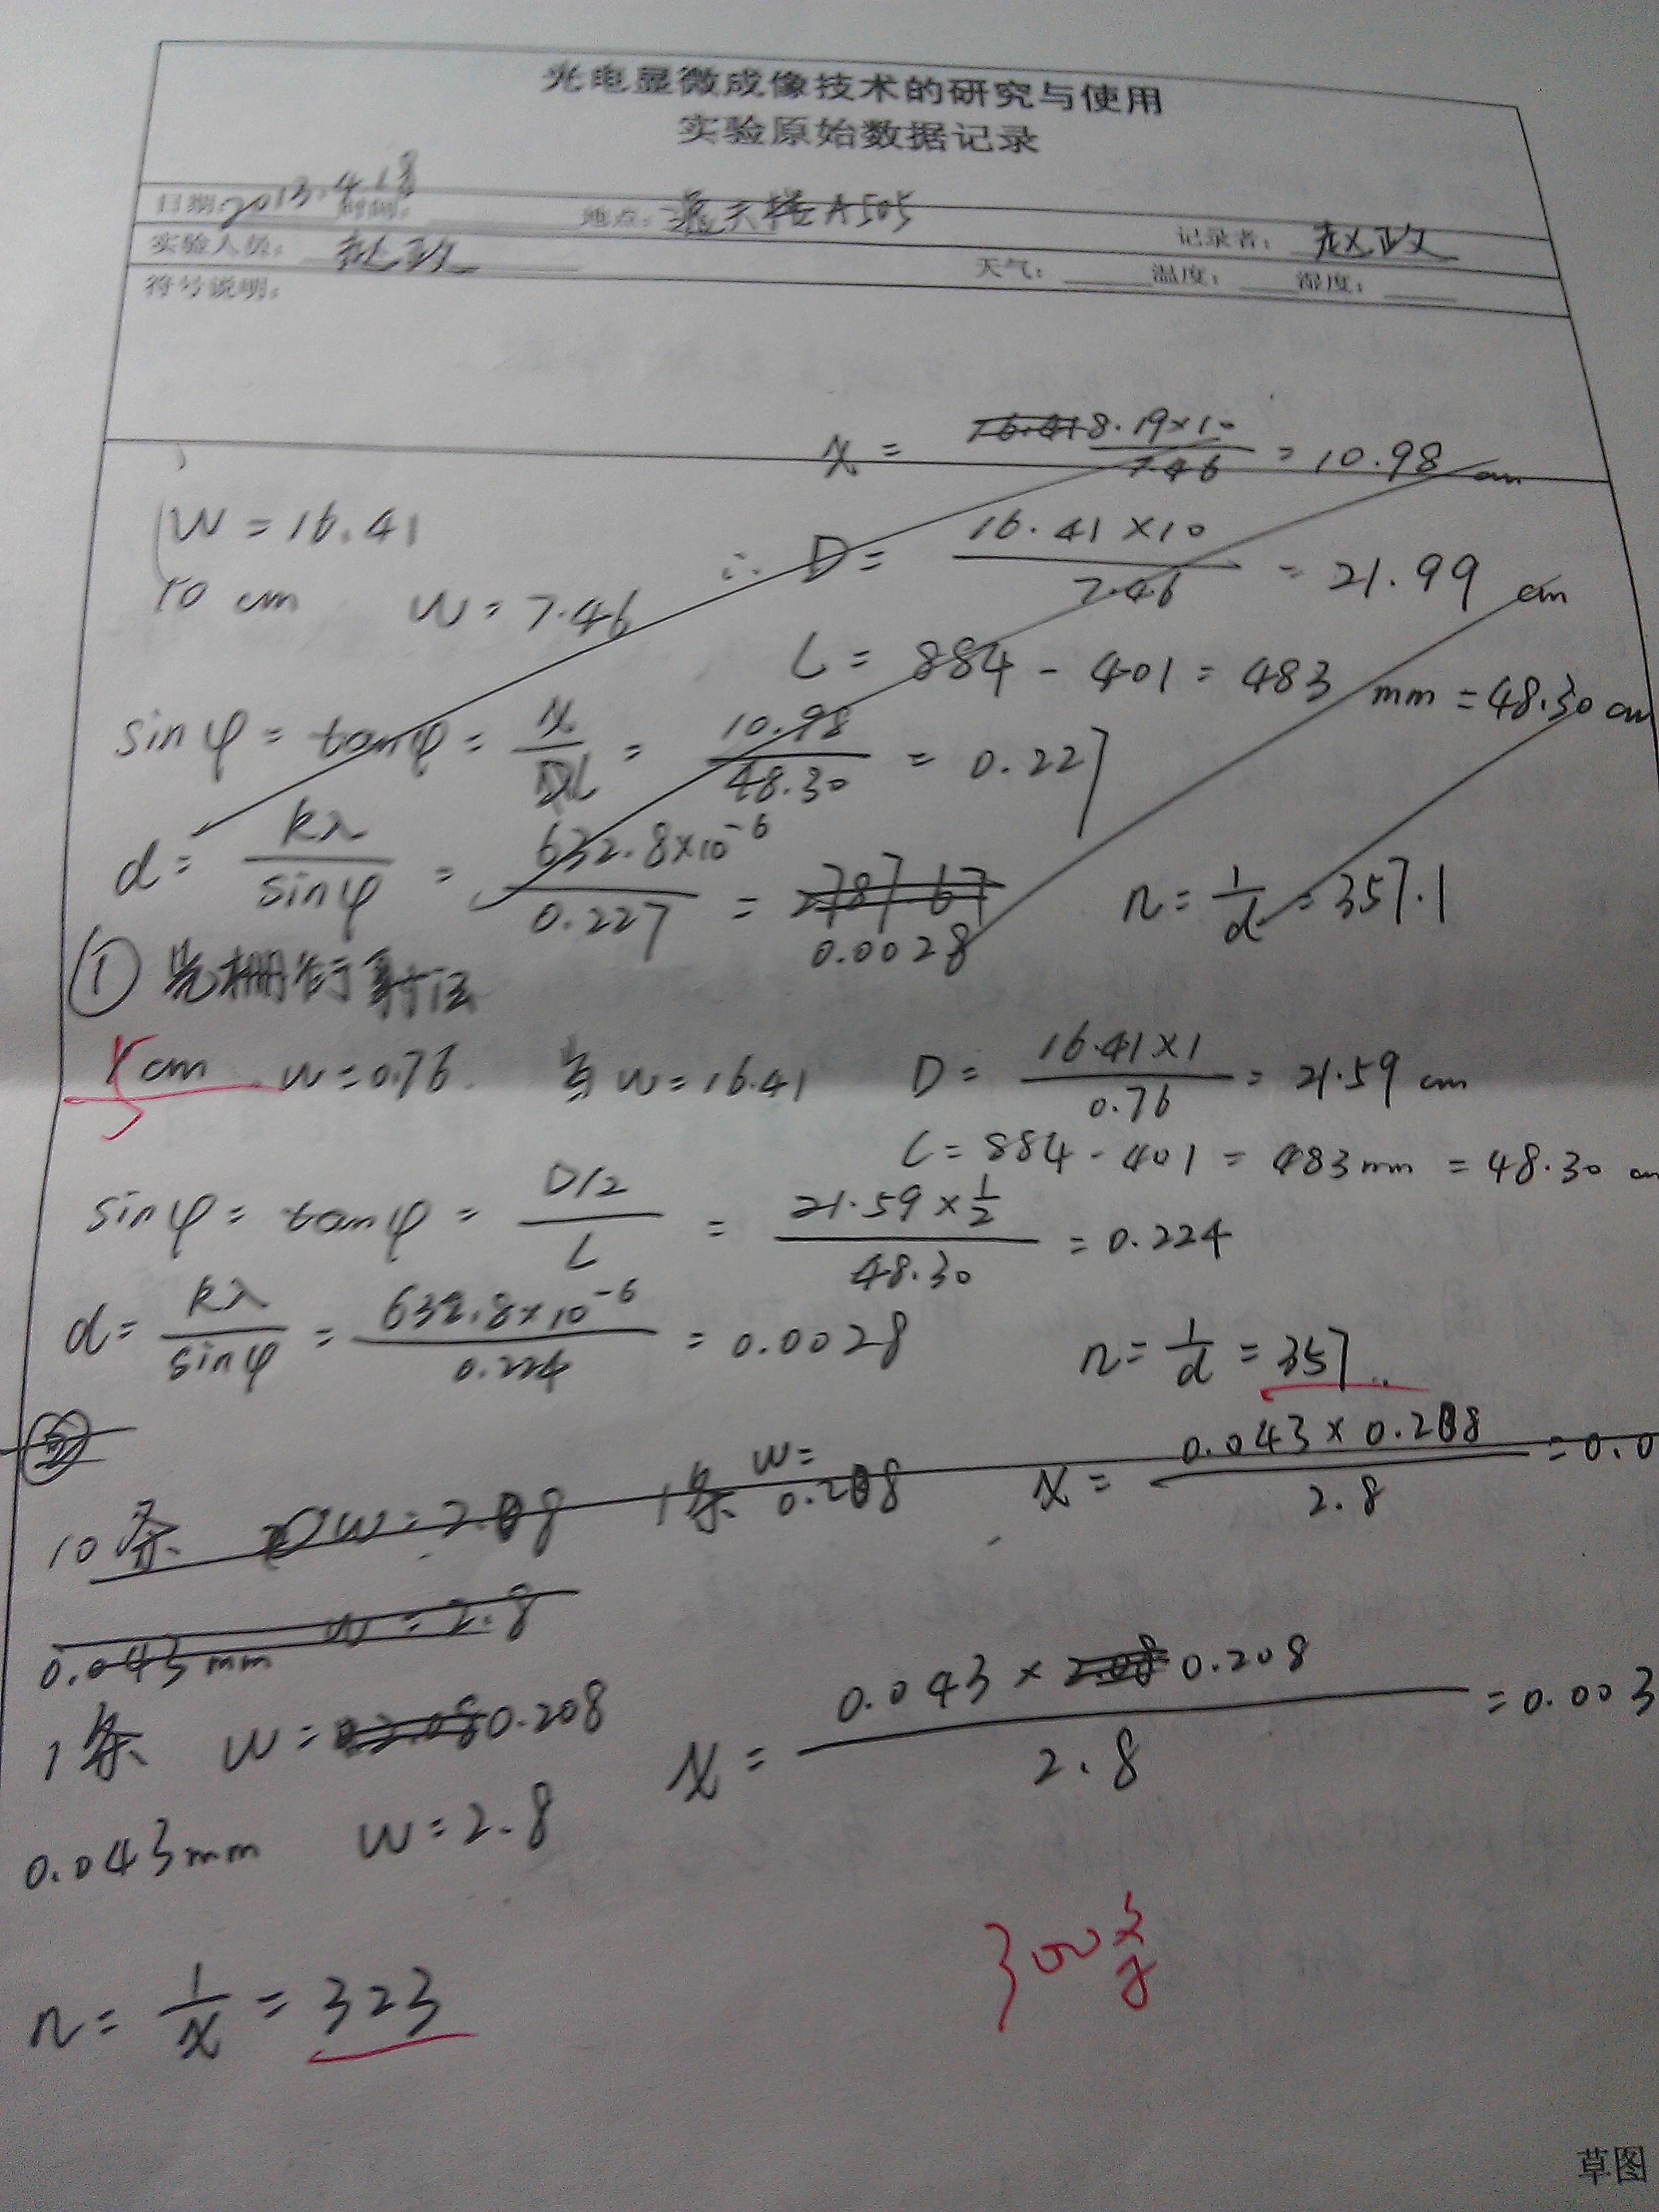 光电显微成像技术的研究与使用
实验原始数据记录
日期: 2013.4.18 时间: 地点: 逸夫楼A505 记录者: 赵政
实验人员: 赵政 天气: 温度: 湿度:
符号说明:
x = 16.41 8.19×10 / 7.46 = 10.98 cm
W = 16.41
∴ D = 16.41×10 / 7.46 = 21.99 cm
10 cm W = 7.46
L = 884 - 401 = 483 mm = 48.30 cm
sinφ = tanφ = x / DL = 10.98 / 48.30 = 0.227
d = kλ / sinφ = 632.8×10⁻⁶ / 0.227 = 0.0028 n = 1/d = 357.1
① 光栅衍射法
1 cm W = 0.76 当 W = 16.41 D = 16.41×1 / 0.76 = 21.59 cm
5
L = 884 - 401 = 483mm = 48.30 cm
sinφ = tanφ = D/2 / L = 21.59×1/2 / 48.30 = 0.224
d = kλ / sinφ = 632.8×10⁻⁶ / 0.224 = 0.0028 n = 1/d = 357
②
10条 W = 2.08 1条 W = 0.208 x = 0.043×0.208 / 2.8 = 0.0
0.043mm W = 2.8
1条 W = 0.208 x = 0.043×2.08 0.208 / 2.8 = 0.003
0.043mm W = 2.8
n = 1/x = 323
300
草图